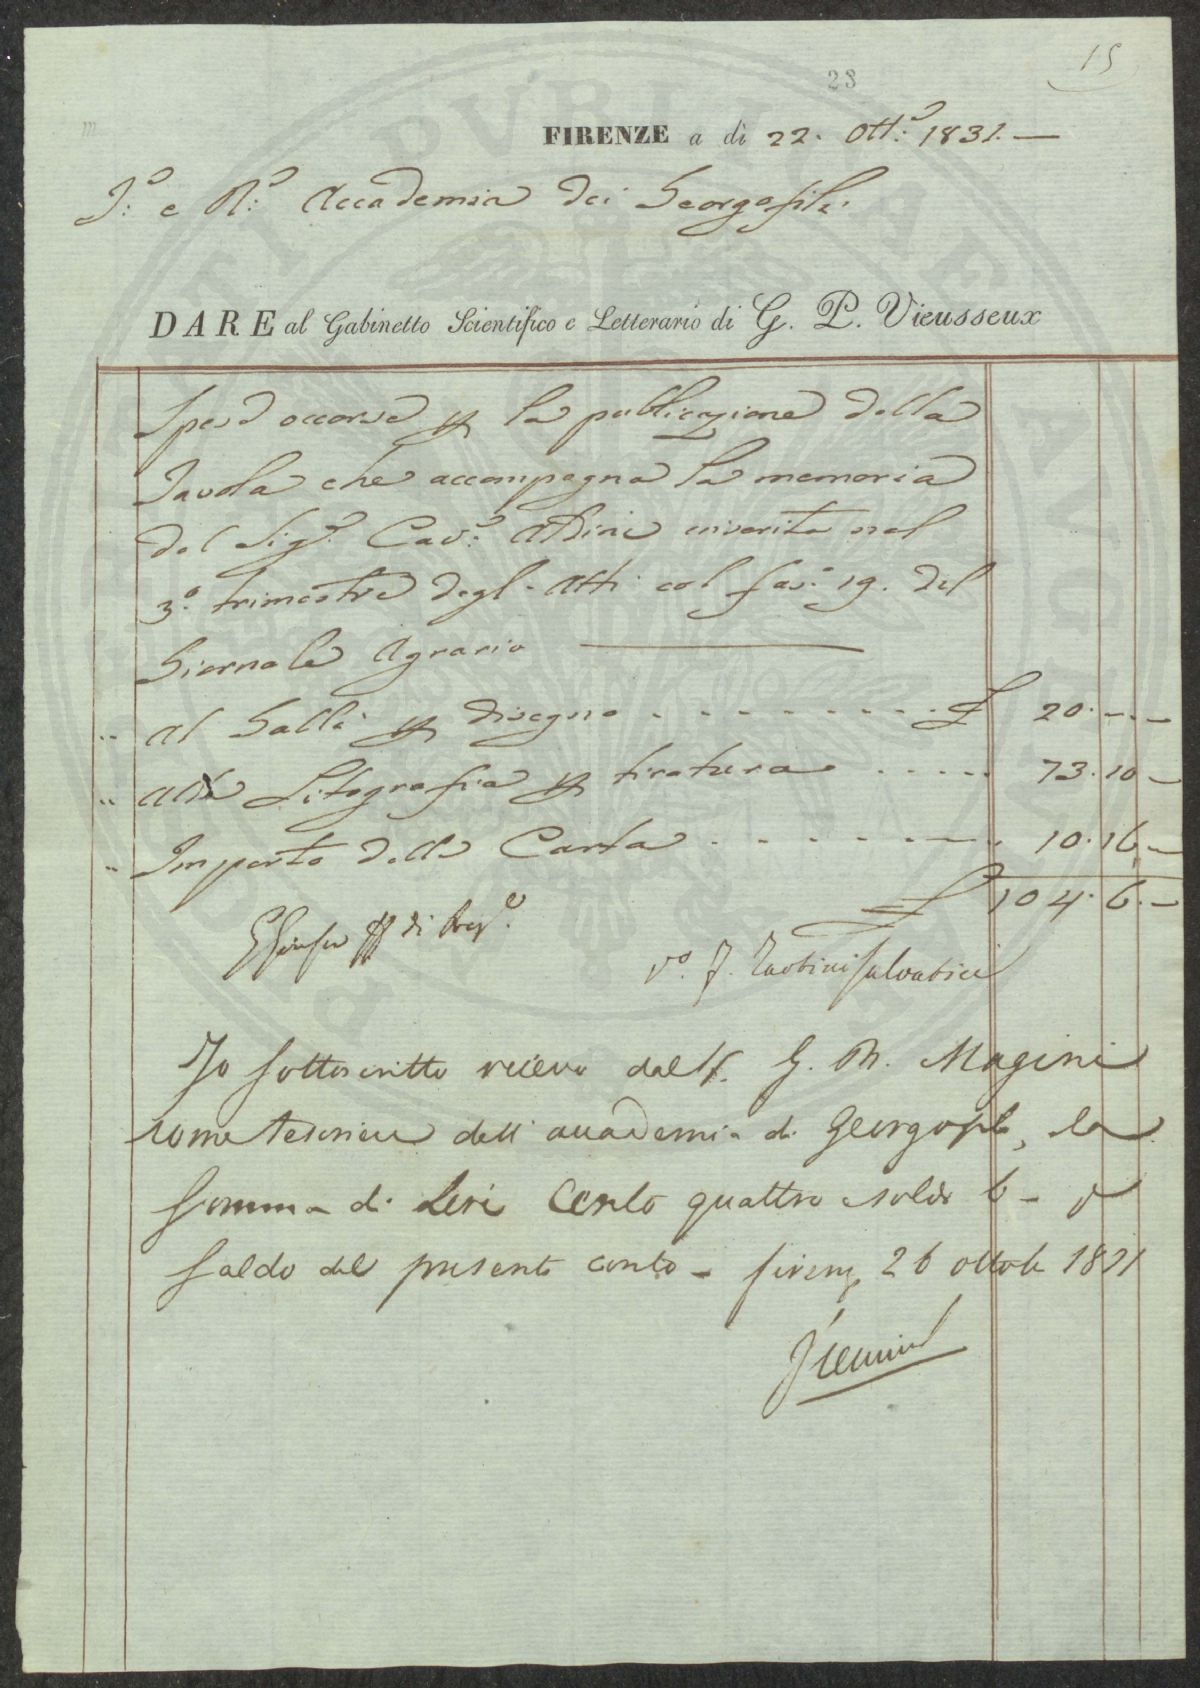 15
23
FIRENZE a dì 22. Ott.e 1831.—
I: e R: Accademia dei Georgofili
DARE al Gabinetto Scientifico e Letterario di G. P. Vieusseux
Spese occorse p la publicazione della
Tavola che accompagna la memoria
del Sig.r Cav.e Aldini inserita nel
3.o trimestre degl. Atti col fas.o 19. del
Giornale Agrario —
" al Galli p disegno . . . . . . . . . . £ 20. — . —
" alla Litografia p tiratura . . . . . 73. 10 —
" Importo della Carta . . . . . . 10. 16. —
£ 104. 6. —
di
V.o F. Tartini Salvatici
Io sottoscritto ricevo dal S. G. B. Magini
come tesoriere dell' accademia di Georgofili, la
somma di Lire Cento quattro soldi 6 - p
saldo del presente conto - firenz 26 ottob 1831